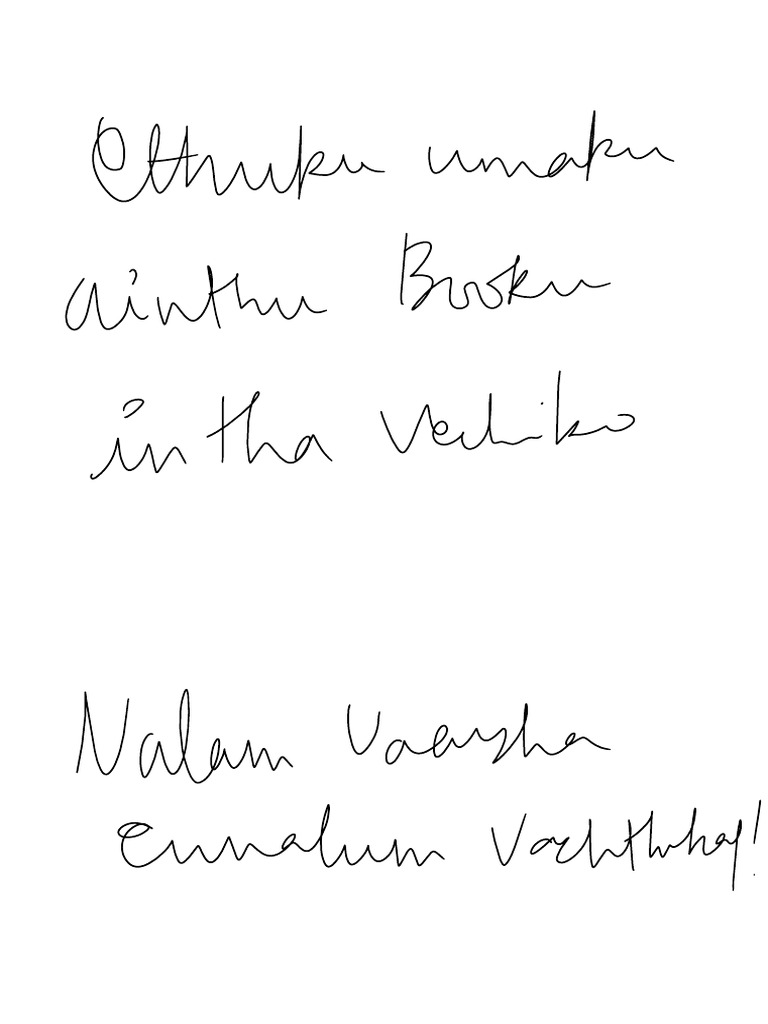 Ethuku umaku
ainthu Booku
intha Vechiko
Nalam Vaazha
ennalum Vazhthukal!